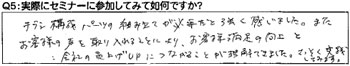 Q5:実際にセミナーに参加してみて如何ですか?
チラシ構成 パーツの組み立てが必要だと強く感じました。また
お客様の声を取り入れることにより、お客様満足の向上と
会社の売上げUPにつながることが理解できました。さっそく実践
してみます。